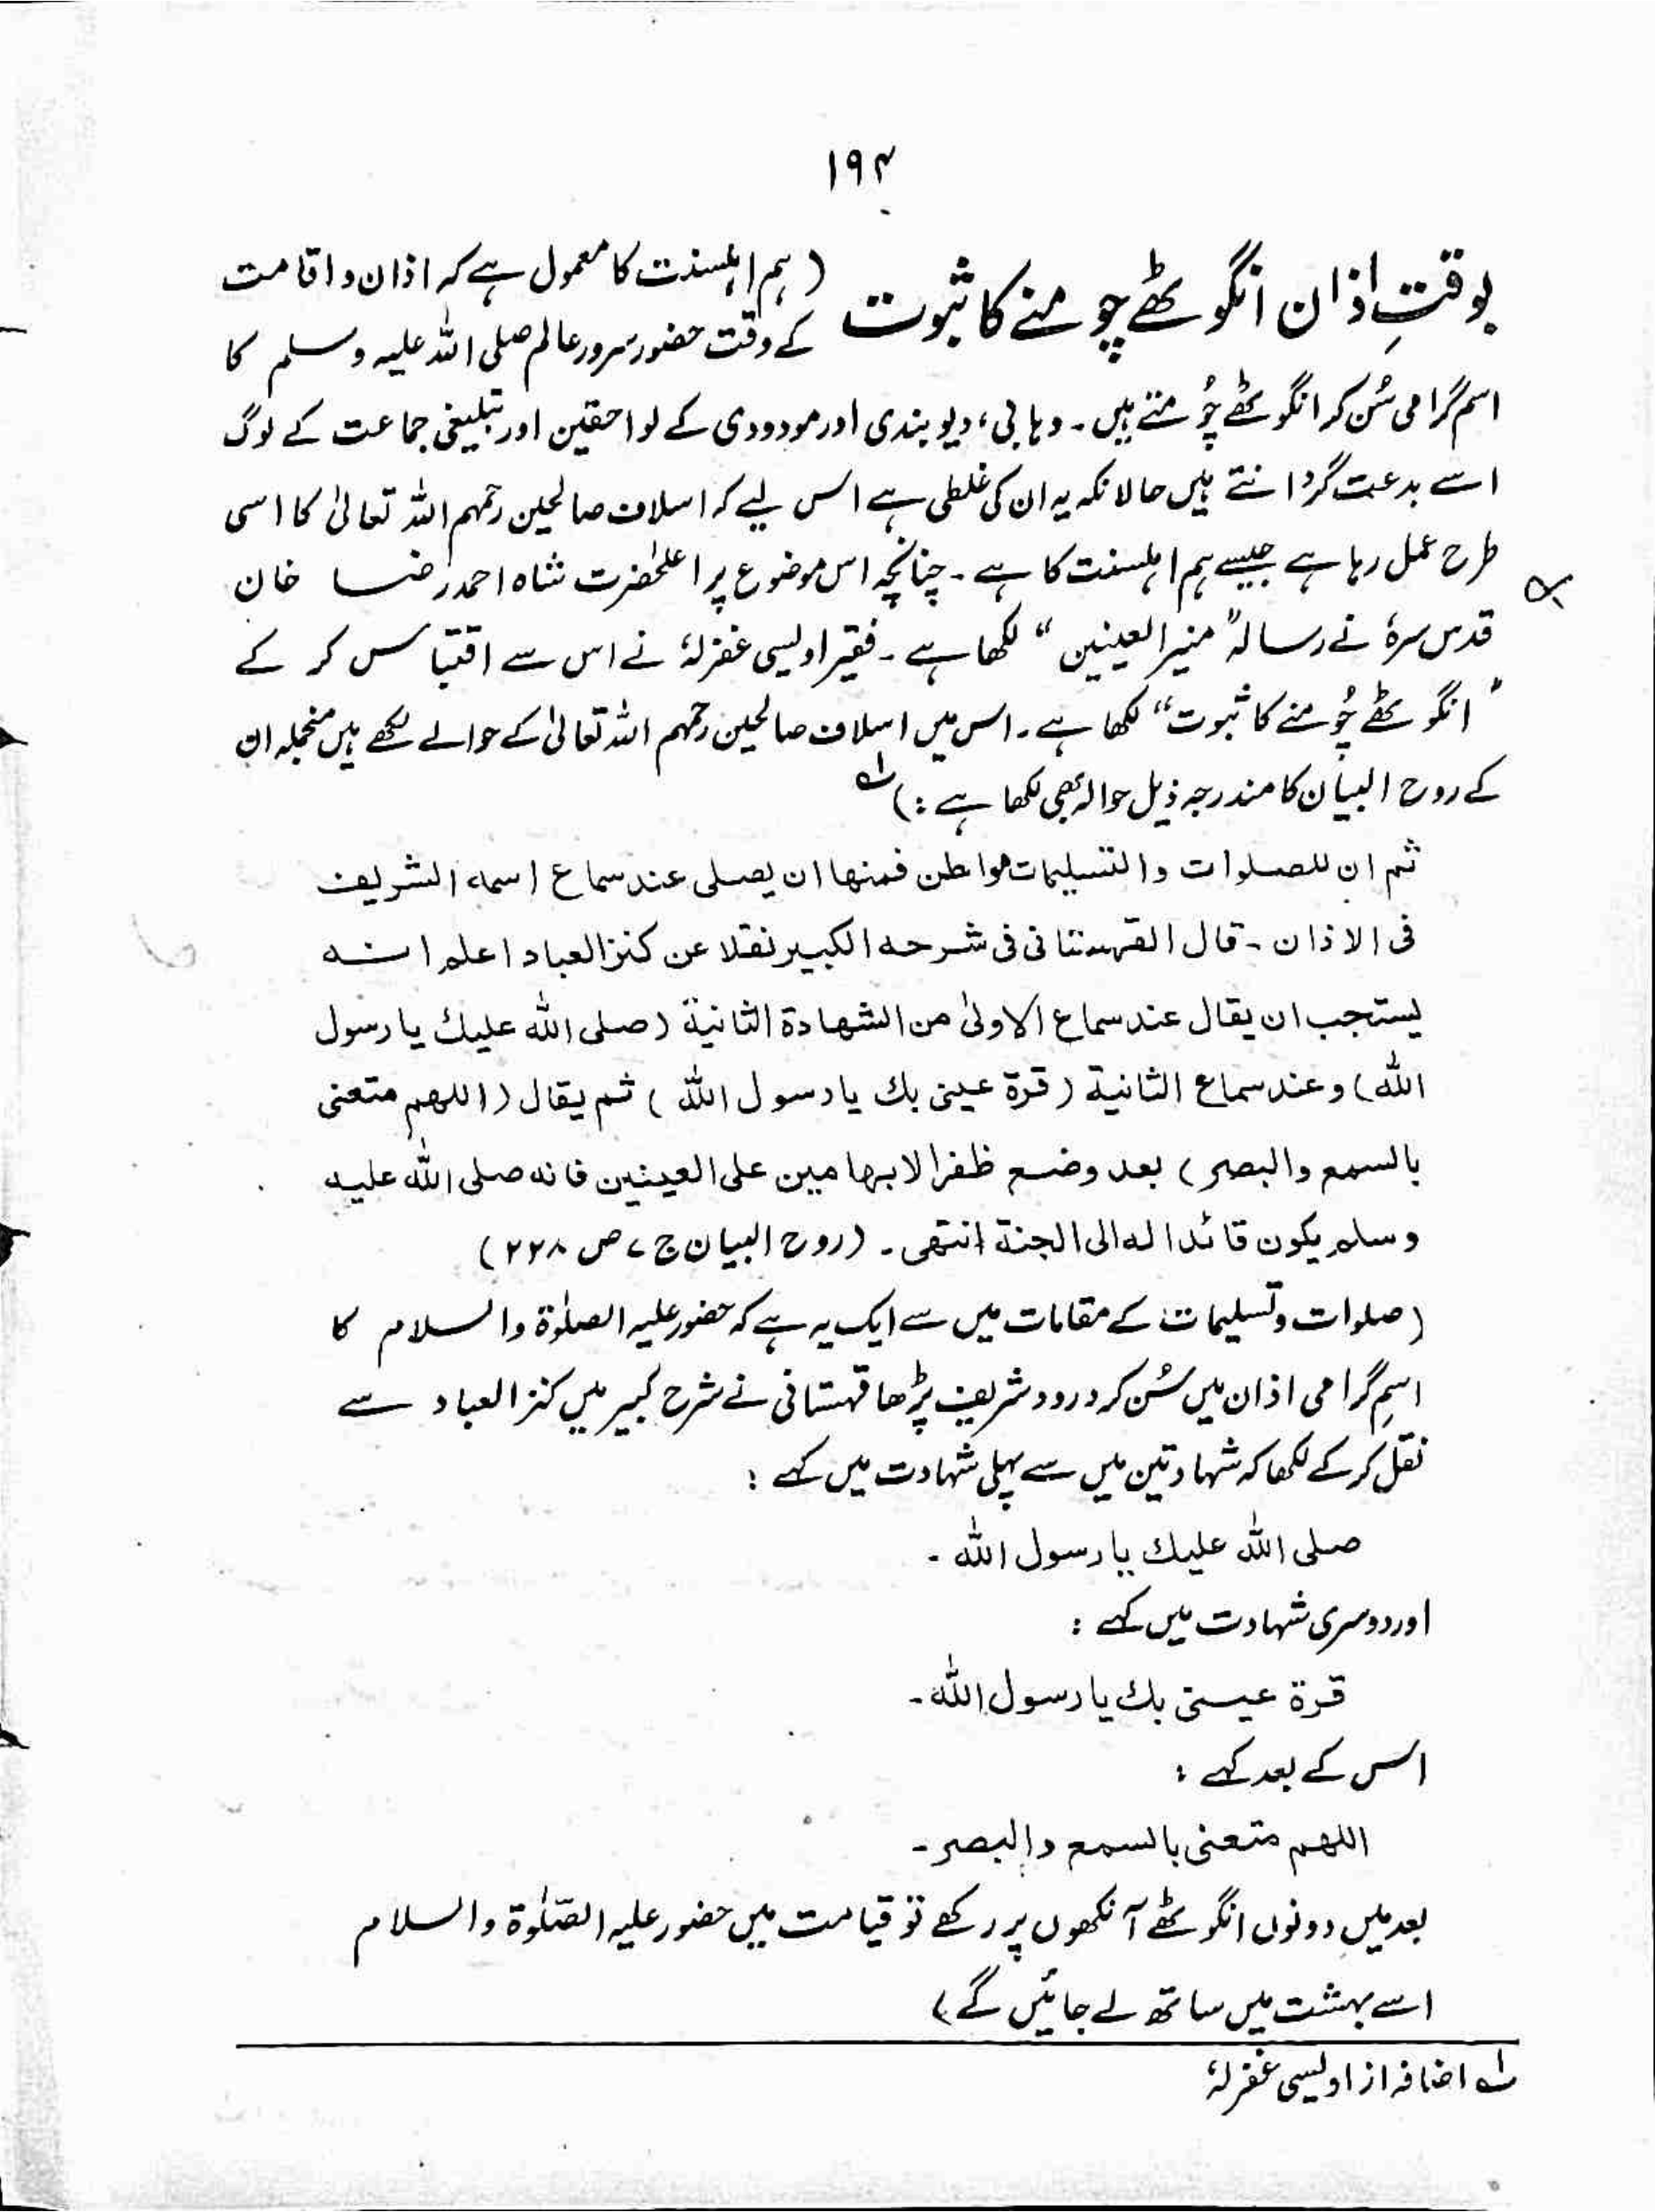 ۱۹۴
بوقتِ اذان انگوٹھے چومنے کا ثبوت (ہم اہلسنت کا معمول ہے کہ اذان و اقامت
کے وقت حضور سرور عالم صلی اللہ علیہ وسلم کا
اسم گرامی سُن کر انگوٹھے چُومتے ہیں ۔ وہابی، دیوبندی اور مودودی کے لواحقین اور تبلیغی جماعت کے لوگ
اسے بدعت گردانتے ہیں حالانکہ یہ ان کی غلطی ہے اس لیے کہ اسلاف صالحین رحمہم اللہ تعالیٰ کا اسی
طرح عمل رہا ہے جیسے ہم اہلسنت کا ہے ۔ چنانچہ اس موضوع پر اعلحٰضرت شاہ احمد رضا خان
قدس سرہٗ نے رسالہ "منیر العینین" لکھا ہے ۔ فقیر اویسی غفرلہٗ نے اس سے اقتباس کر کے
"انگوٹھے چُومنے کا ثبوت" لکھا ہے ۔ اس میں اسلاف صالحین رحمہم اللہ تعالیٰ کے حوالے لکھے ہیں منجملہ ان
کے روح البیان کا مندرجہ ذیل حوالہ بھی لکھا ہے :) لہ
ثم ان للصلوات والتسلیمات مواطن فمنھا ان یصلی عند سماع اسمہ الشریف
فی الاذان ۔ قال القھستانی فی شرحہ الکبیر نقلا عن کنز العباد اعلم انہ
یستحب ان یقال عند سماع الاولیٰ من الشھادۃ الثانیۃ (صلی اللہ علیك یا رسول
اللہ) وعند سماع الثانیۃ (قرۃ عینی بك یا رسول اللہ) ثم یقال (اللھم متعنی
بالسمع والبصر) بعد وضع ظفر الابھامین علی العینین فانہ صلی اللہ علیہ
وسلم یکون قائدا لہ الی الجنۃ انتھی ۔ (روح البیان ج ۷ ص ۲۲۸)
(صلوات وتسلیمات کے مقامات میں سے ایک یہ ہے کہ حضور علیہ الصلوٰۃ والسلام کا
اسمِ گرامی اذان میں سُن کر درود شریف پڑھا قہستانی نے شرح کبیر میں کنز العباد سے
نقل کر کے لکھا کہ شہادتین میں سے پہلی شہادت میں کہے :
صلی اللہ علیك یا رسول اللہ ۔
اور دوسری شہادت میں کہے :
قرۃ عینی بك یا رسول اللہ ۔
اس کے بعد کہے :
اللھم متعنی بالسمع والبصر ۔
بعد میں دونوں انگوٹھے آنکھوں پر رکھے تو قیامت میں حضور علیہ الصّلوٰۃ والسلام
اسے بہشت میں ساتھ لے جائیں گے)
لہ اضافہ از اویسی غفرلہٗ